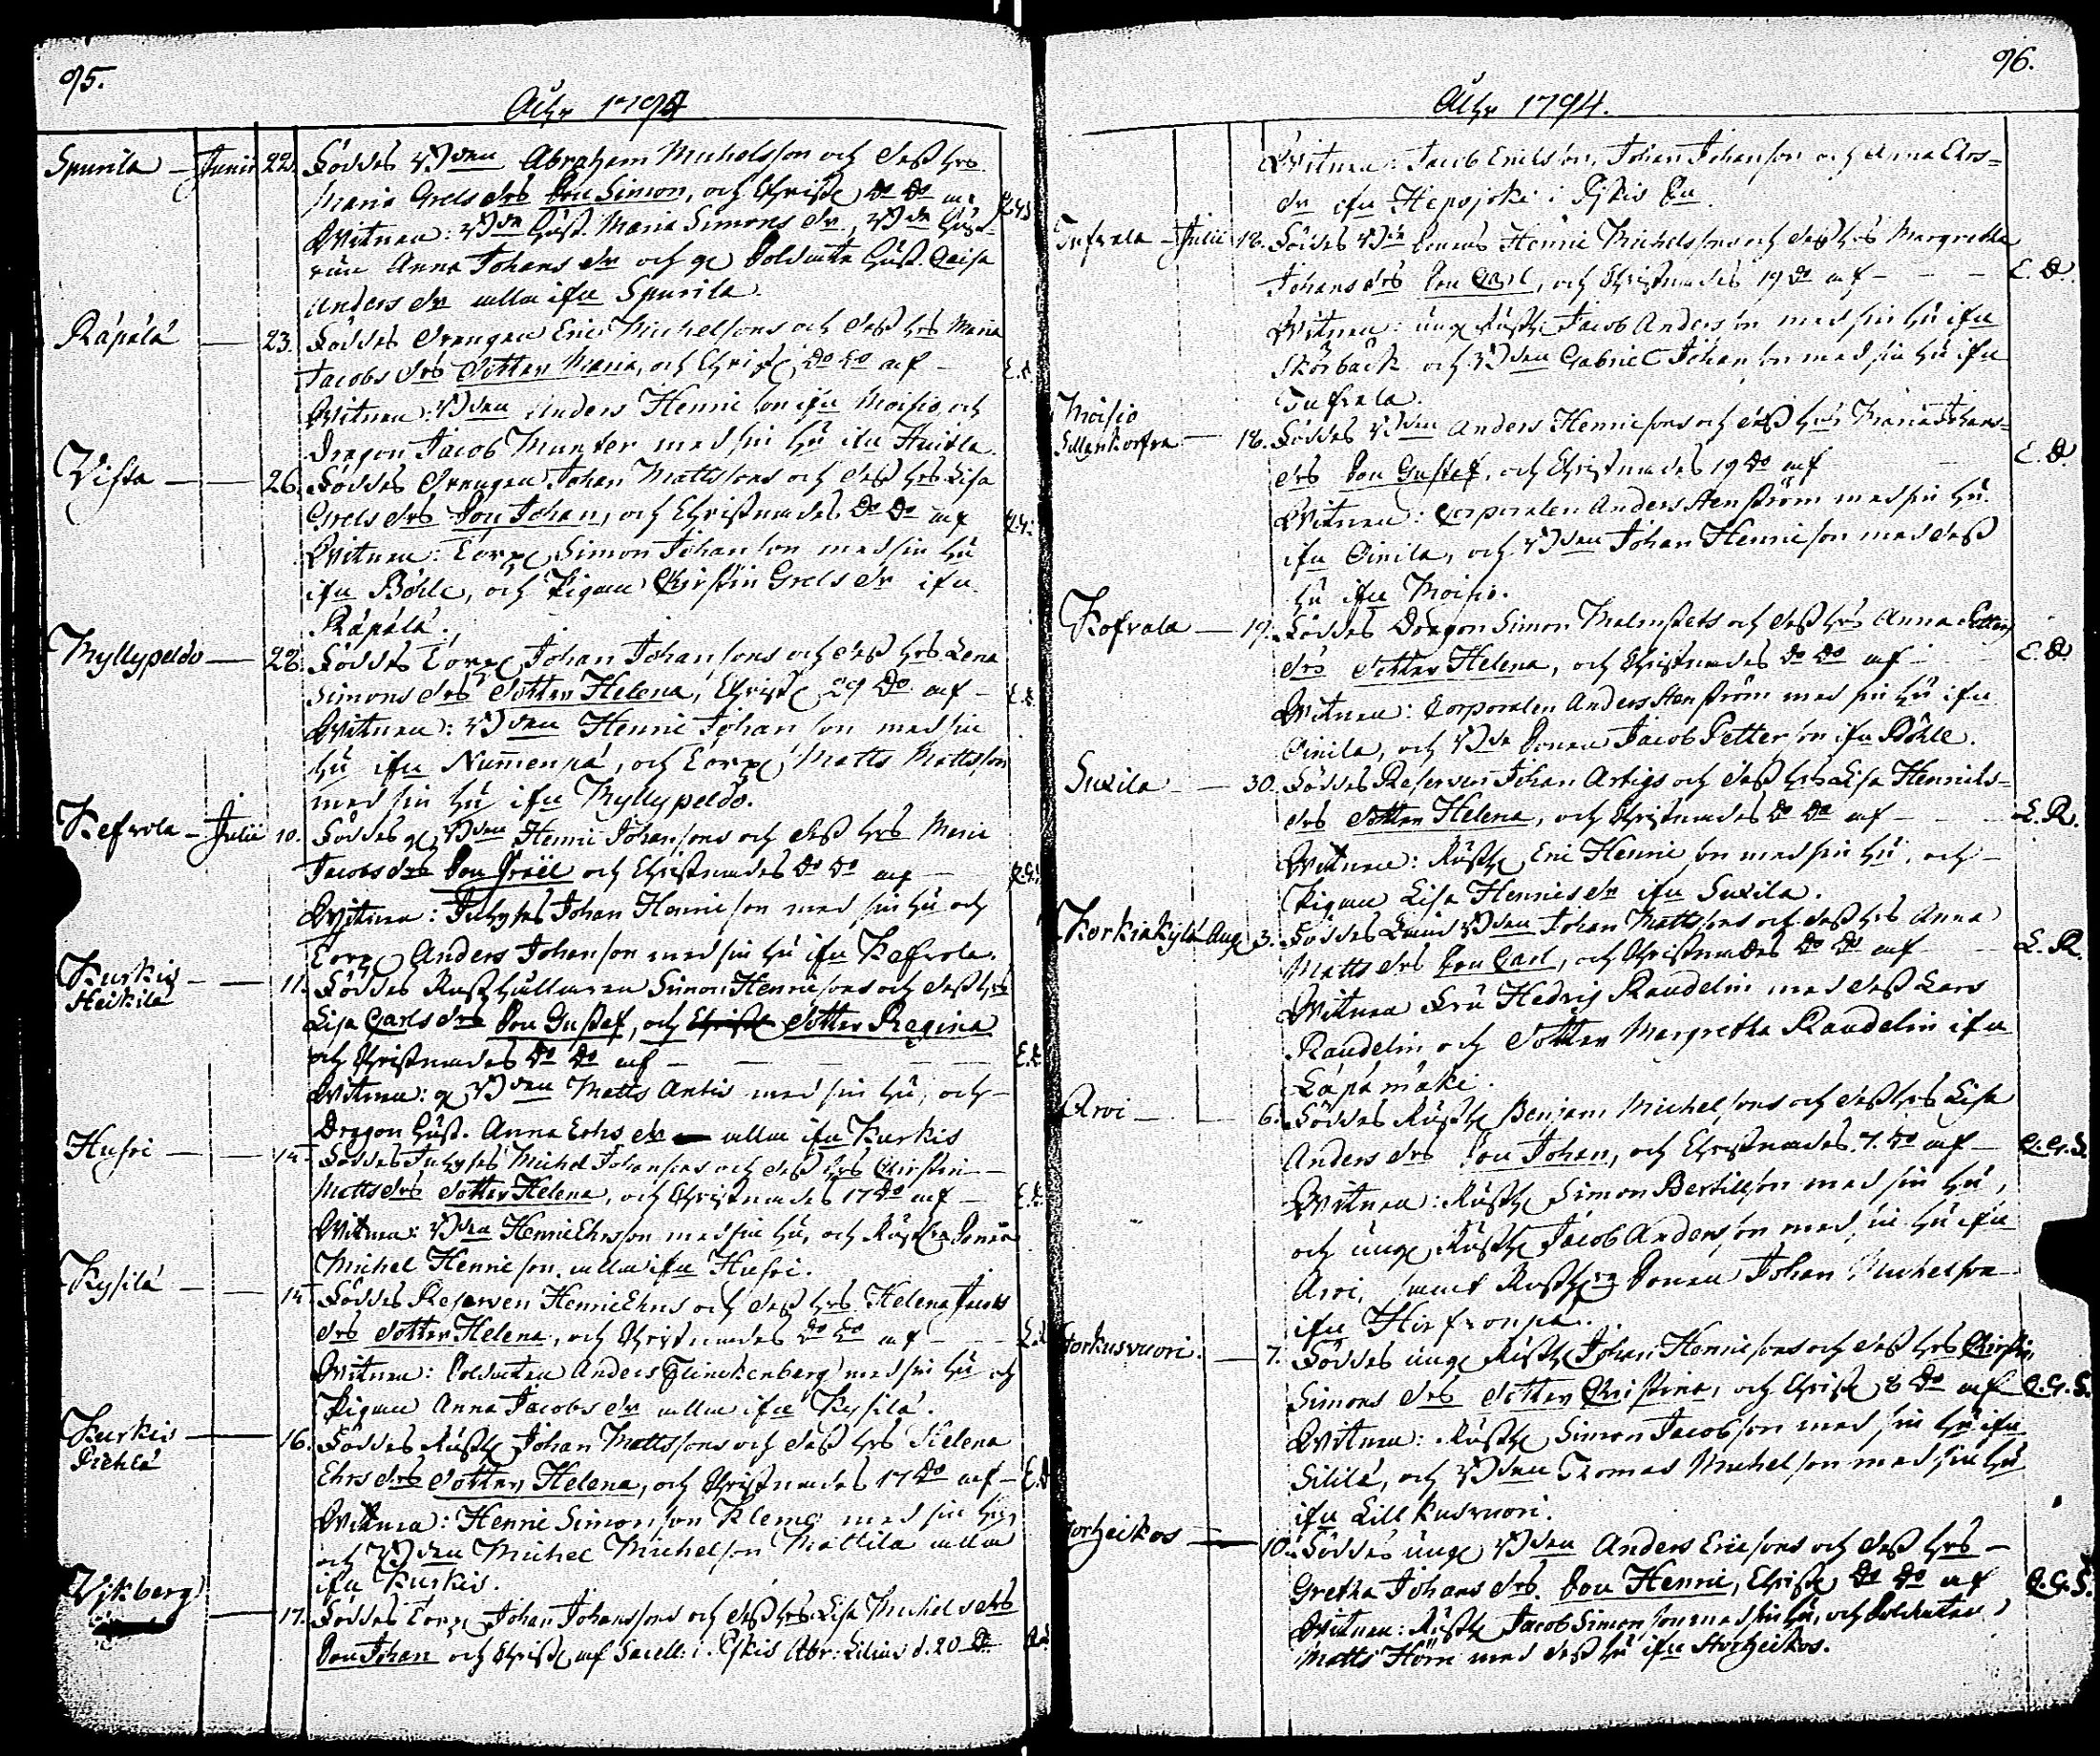 95.
Åhr 1794
Spurila - Junii 22. Föddes Bden Abraham Michelsson och dess hus
Maria Grels drs Son Simon, och Christ. Do Do af
Witnen: Bde hust. Maria Simons dr, Bde hust-
run Anna Johans dr och g. Soldate hust. Caisa
Anders dr alla ifrn Spurila.
Räpälä - 23. Föddes Drengen Eric Michelsons och dess hus Maria
Jacobs drs Dotter Maria, och Christ. Do Do af - E.E.
Witnen: Bden Anders Henricson ifrn Moisio, och
Dragon Jacob Munter med sin hu ifrn
Vista - 26. Föddes Drengen Johan Mattssons och dess hus Lisa
Grels drs Son Johan, och Christnades Do Do af
Witnen: Torp. Simon Johansson med sin hu
ifrn Böhle, och Pigan Christin Grels dr ifrn
Räpälä.
Myllypeldo - 28. Föddes Torp. Johan Johansons och dess hus Lena
Simons drs Dotter Helena, Christ. 29 Do af -
Witnen: Bden Henric Johanson med sin
hu ifrn Nummenpä, och Torp. Matts Mattsson
med sin hu ifrn Myllypeldo.
Kefrola - Julii 10. Föddes g. Bden Henric Johansons och dess hus Maria
Jacobs drs Son Israël och Christnades Do Do af -
Witnen: Inhyses Johan Henricson med sin hu och
Torp. Anders Johanson med sin hu ifrn Kefrola.
Kurkis Heikilä - 11. Föddes Rusthållaren Simon Henricsons och dess hus
Lisa Carls drs Son Gustaf, och Christ. Dotter Regina
och Christnades Do Do af - E.E.
Witnen: g. Bden Matts Antis med sin hu, och -
Dragon hust. Anna Erks dr alla ifrn Kurkis
Husri - 15. Föddes Inhyses Michel Johansons och dess hus Christin -
Matts drs Dotter Helena, och Christnades 17 Do af -
Witnen: Bden Henric Ericsson med sin hu, och Rusth. Sonen
Michel Henricson, alla ifrn Husri.
Kysilä - 15. Föddes Reserven Henric Ehns och dess hus Helena Jacobs
drs Dotter Helena, och Christnades Do Do af -
Witnen: Soldaten Anders Flinckenberg med sin hu och
Pigan Anna Jacobs dr alla ifrn Kysilä.
Kurkis Piehlä - 16. Föddes Rusth. Johan Mattssons och dess hus Helena
Ehrs drs Dotter Helena, och Christnades 17 Do af -
Witnen: Henric Simonson Klemo med sin hu,
och Bden Michel Michelson Mattila alla
ifrn Kurkis.
Vikberg - 17. Föddes Torp. Johan Johanssons och dess hus Lisa Michels drs
Son Johan och Christ. af Sacell. i Pikis Abr: Lilius d. 20 Do
96.
Åhr 1794.
Witnen: Jacob Ericksson, Johan Johanson och Anna Ehrs-
dr ifrn Hepojoki i Pikis Sn.
Tufvala - Julii 18. Föddes Bde Sonens Henric Michelsons och dess hus Margretha
Johans drs Son Carl, och Christnades 19 Do af - E.E.
Witnen: ung. Rusth. Jacob Anderson med sin hu ifrn
Skörbäck och Bden Gabriel Johanson med sin hu ifrn
Tufvala.
Moisio - 18. Föddes Bden Anders Henricsons och dess hus Maria Johans-
drs Son Gustaf, och Christnades 19 Do af - E.E.
Witnen: Corporalen Anders Stenström med sin hu
ifrn Oinila, och Bden Johan Henricson med dess
hu ifrn Moisio.
Kofvala - 19. Föddes Dragon Simon Malmstets och dess hus Anna Petters
drs Dotter Helena, och Christnades Do Do af - E.E.
Witnen: Corporalen Anders Stenström med sin hu ifrn
Oinila, och Bde Sonen Jacob Petterson ifrn Böhle.
Suxila - 30. Föddes Reserven Johan Artigs och dess hus Lisa Henrichs-
drs Dotter Helena, och Christnades Do Do af - L.R.
Witnen: Rusth. Eric Henricson med sin hu, och -
Pigan Lisa Henrics dr ifrn Suxila.
Korkiakylä Aug. 3. Föddes Bden Johan Mattssons och dess hus Anna
Matts drs Son Carl, och Christnades Do Do af - L.R.
Witnen Fru Hedvig Randelin med dess Lars
Randelin och Dotter Margretha Randelin ifrn
Läpämäki.
Arvi - 6. Föddes Rusth. Benjam Michelsons och dess hus Lisa
Anders drs Son Johan, och Christnades 7. Do af - C.G.S.
Witnen: Rusth. Simon Bertillson med sin hu,
och ung. Rusth. Jacob Anderson med sin hu ifrn
Arvi, samt Rusth. Sonen Johan Michelson
ifrn Hirfvonpä.
Storkusvuori. - 7. Föddes ung. Rusth. Johan Henricsons och dess hus Christin
Simons drs Dotter Christina, och Christ. 8 Do af C.G.S.
Witnen: Rusth. Simon Jacobson med sin hu ifrn
Sililä, och Bden Thomas Michelson med sin hu
ifrn Lill Kusvuori.
Storheikos - 10. Föddes ung. Bden Anders Ericsons och dess hus -
Gretha Johans drs. Son Henric, Christ. Do Do af C.G.S.
Witnen: Rusth. Jacob Simonson med sin hu, och Soldaten
Matts Hörn med dess hu ifrn Storheikos.